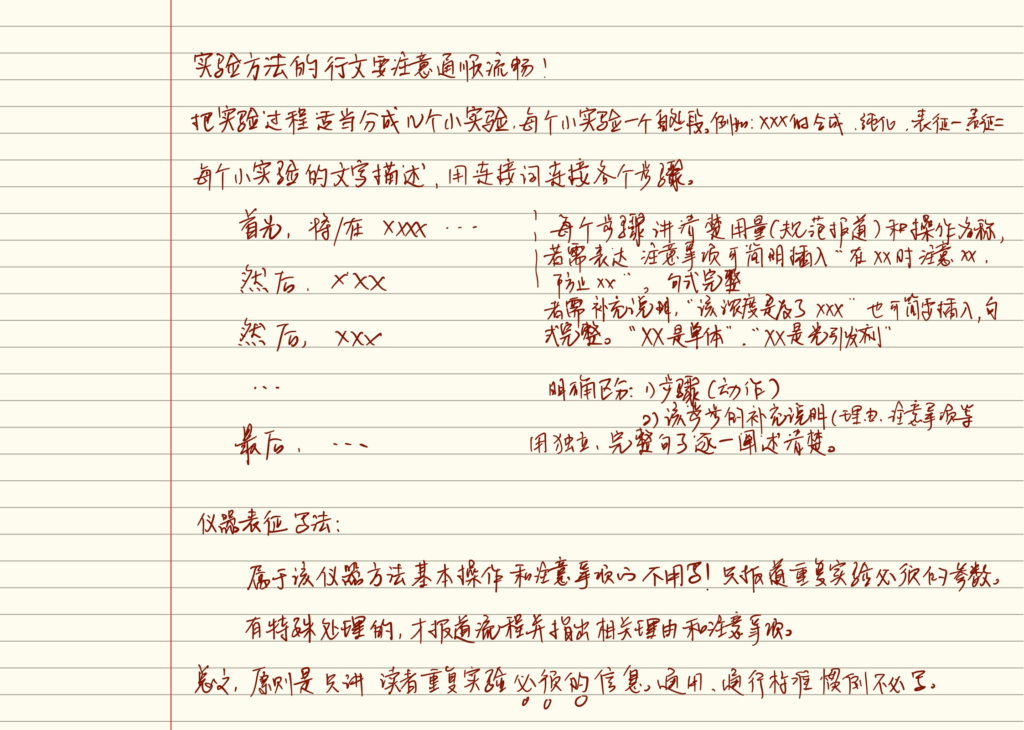 实验方法的行文要注意通顺流畅！
把实验过程适当分成几个小实验,每个小实验一个自然段。例如：XXX的合成、纯化、表征一表征二
每个小实验的文字描述,用连接词连接各个步骤。
首先,将/在 XXXX …
每个步骤讲清楚用量(规范报道)和操作名称,
若需表达 注意事项可简明插入"在XX时注意XX,
然后, XXX
防止XX",句式完整
若需补充说明,"该浓度是为了XXX"也可简要插入,句
然后, XXX
式完整。"XX是单体"."XX是光引发剂"
…
明确区分：1)步骤(动作)
2)该步步的补充说明(理由、注意事项等
最后, …
用独立、完整句子逐一阐述清楚。
仪器表征方法：
属于该仪器方法基本操作和注意事项的不用写！只报道重复实验必须的参数。
有特殊处理的,才报道流程并指出相关理由和注意事项。
总之,原则是只讲 读者重复实验必须的信息。通用、通行标准惯例不必写。